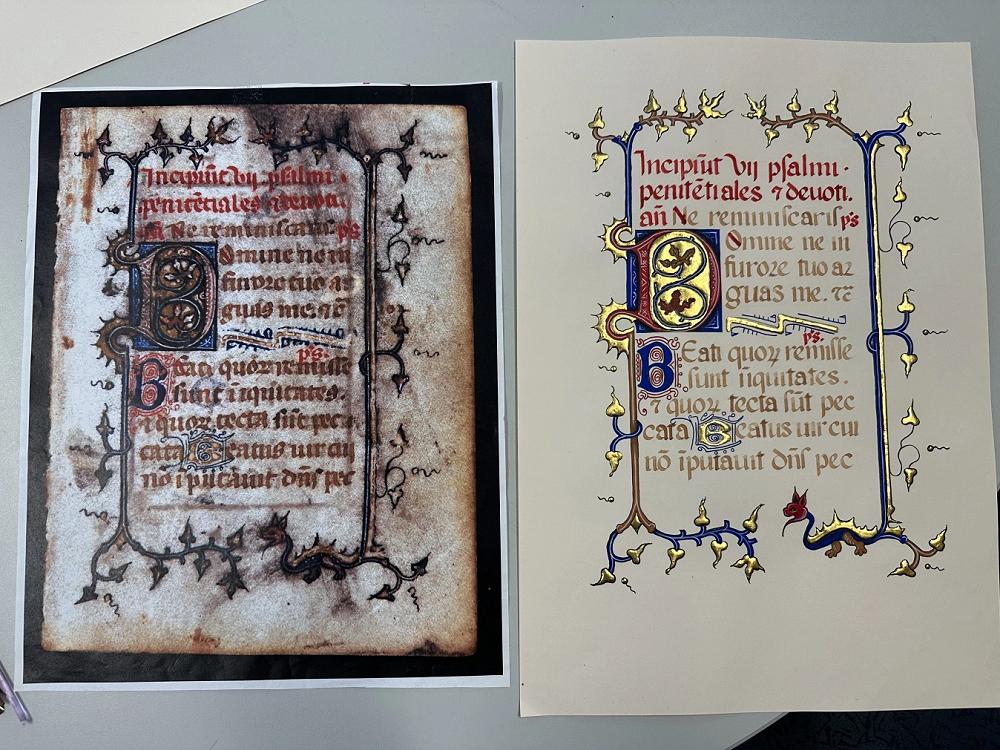 Incipiūt vij psalmi ·
penitētiales ⁊ deuoti.
añ Ne reminiscaris ps
Domine ne in
furore tuo ar
guas me. ⁊c̄
ps.
Beati quoꝝ remisse
sunt īiquitates.
⁊ quoꝝ tecta sūt pec
cata Beatus uir cui
nō īputauit dn̄s pec
Incipiūt Vij psalmi ·
penitētiales ⁊ deuoti.
an̄ Ne reminiscaris ps
Domine ne in
furore tuo ar
guas me. ⁊c̄
ps.
BEati quoꝝ remisse
sunt īiquitates.
⁊ quoꝝ tecta sūt pec
cata Beatus uir cui
nō īputauit dn̄s pec